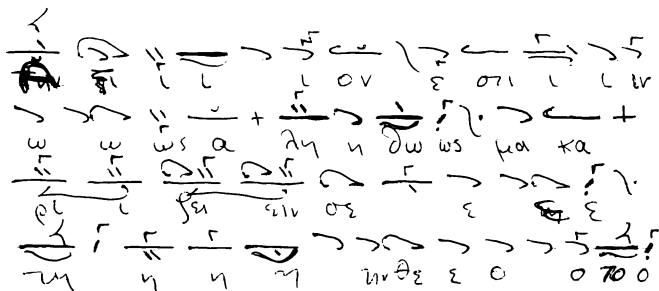 ξι ι ι ι ον ε στι ι ι ιν
ω ω ως α λη η θω ως μα κα
ρι ι ζει ειν σε ε ε
τη η η η ην θε ε ο ο το ο